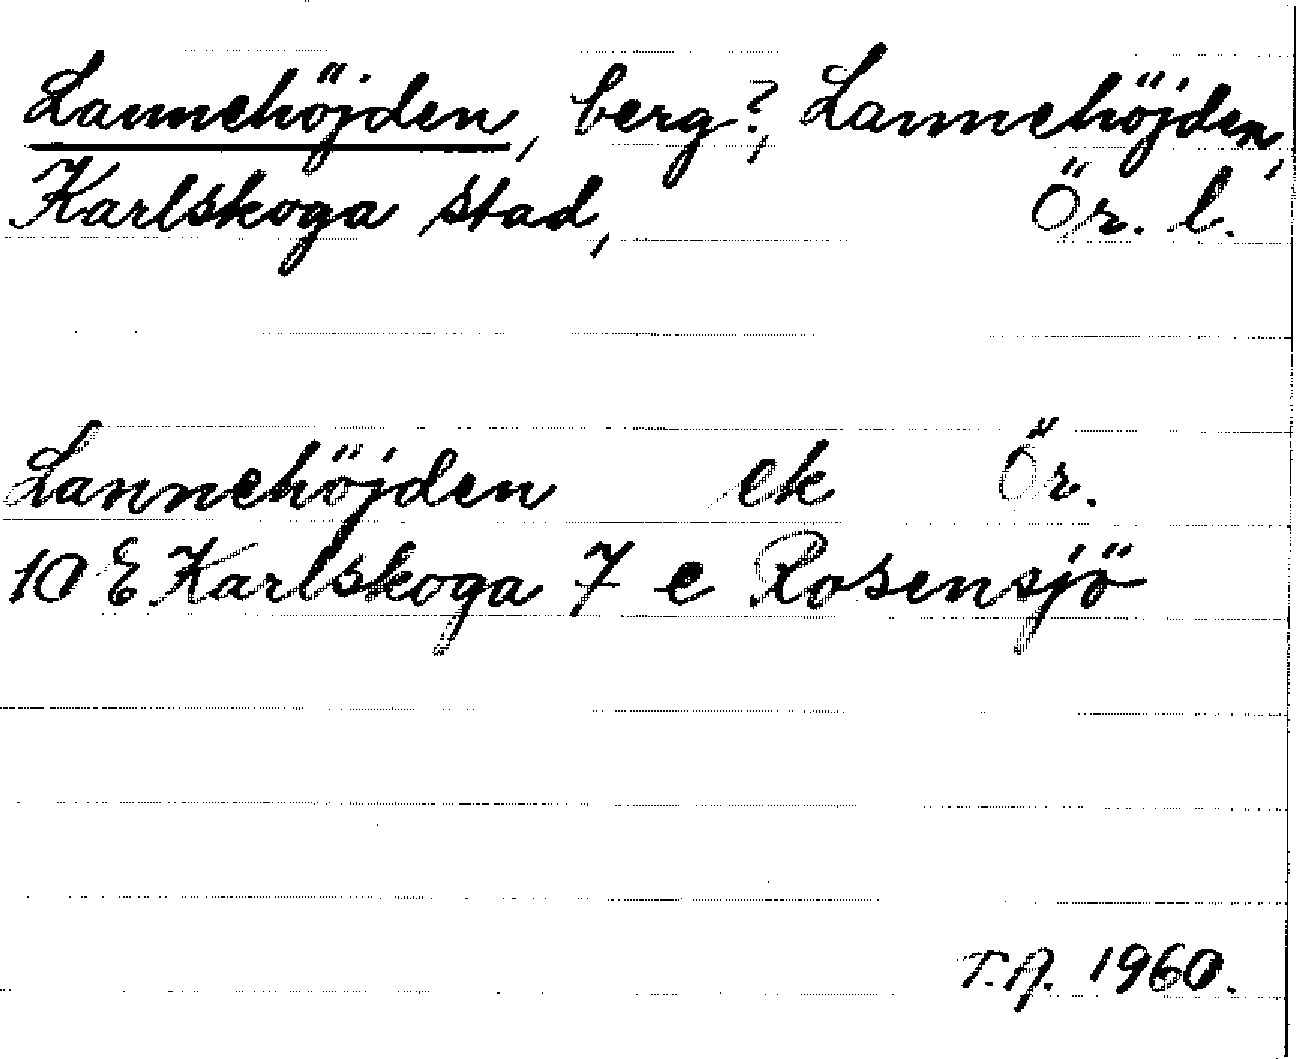 Lannehöjden, berg?, Lannehöjden,
Karlskoga stad, Ör. l.
Lannehöjden ek Ör.
10 E Karlskoga 7 e Rosensjö
T.A. 1960.